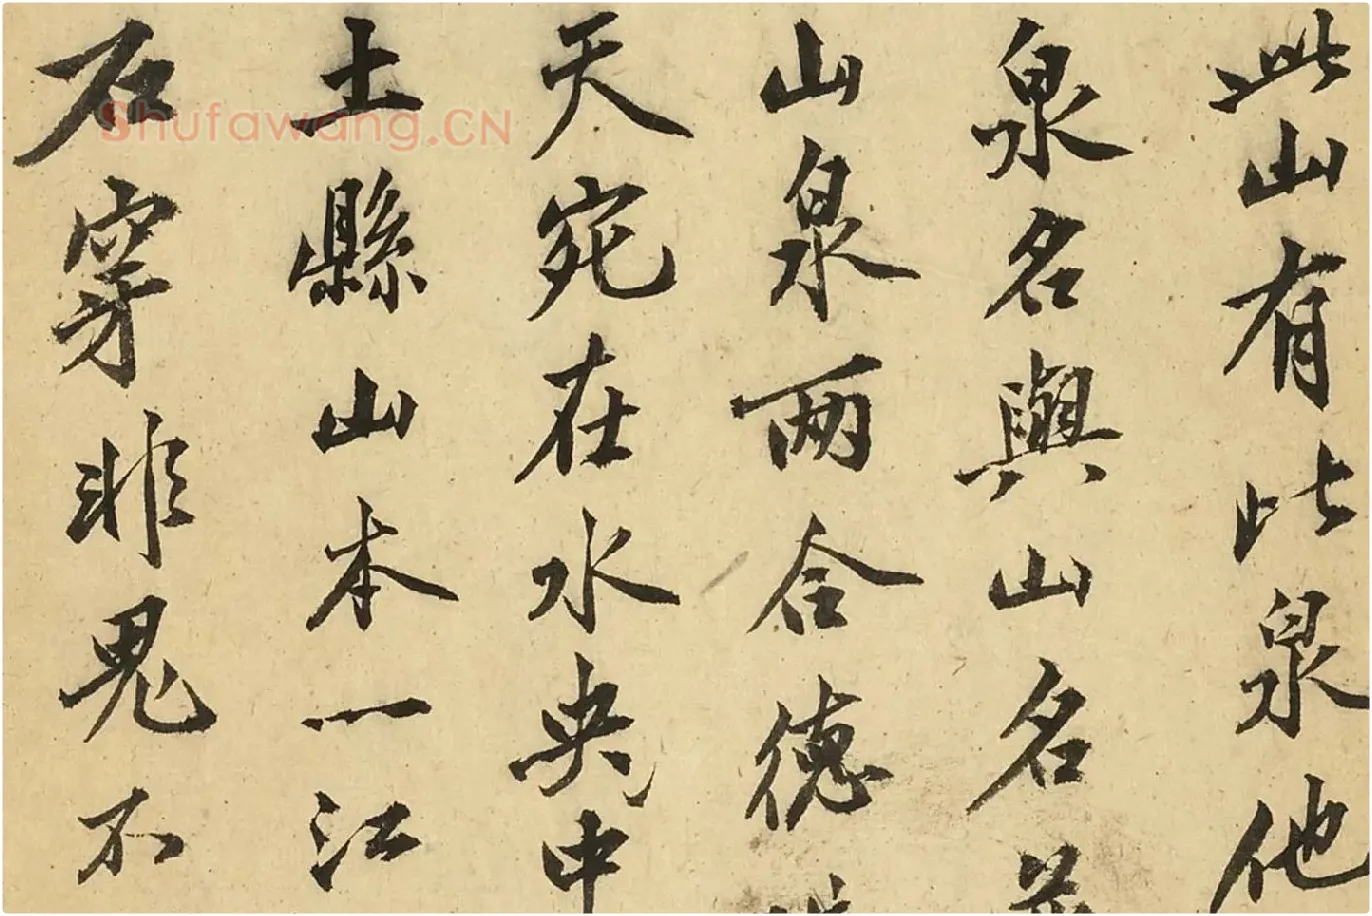 此山有此泉他
泉名與山名
山泉两合徳
天宛在水央中
土縣山本一江
石穿非鬼不
Shufawang.CN